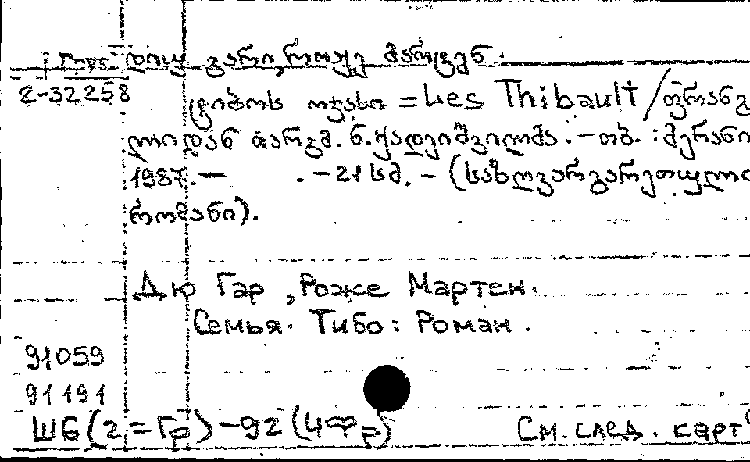 დიუ გარი, როჟე მარტენ.
2-32258
ტიბოს ოჯახი = Les Thibault / ფრანგ
ლიდან თარგმ. ნ. ქადეიშვილმა. - თბ. : მერანი
1987. — . - 21 სმ. - (საზღვარგარეთული
რომანი).
Дю Гар, Роже Мартен.
Семья. Тибо: Роман.
91059
91191
ШБ(2=Гр) - 92 (4Фр)
См. след. карт